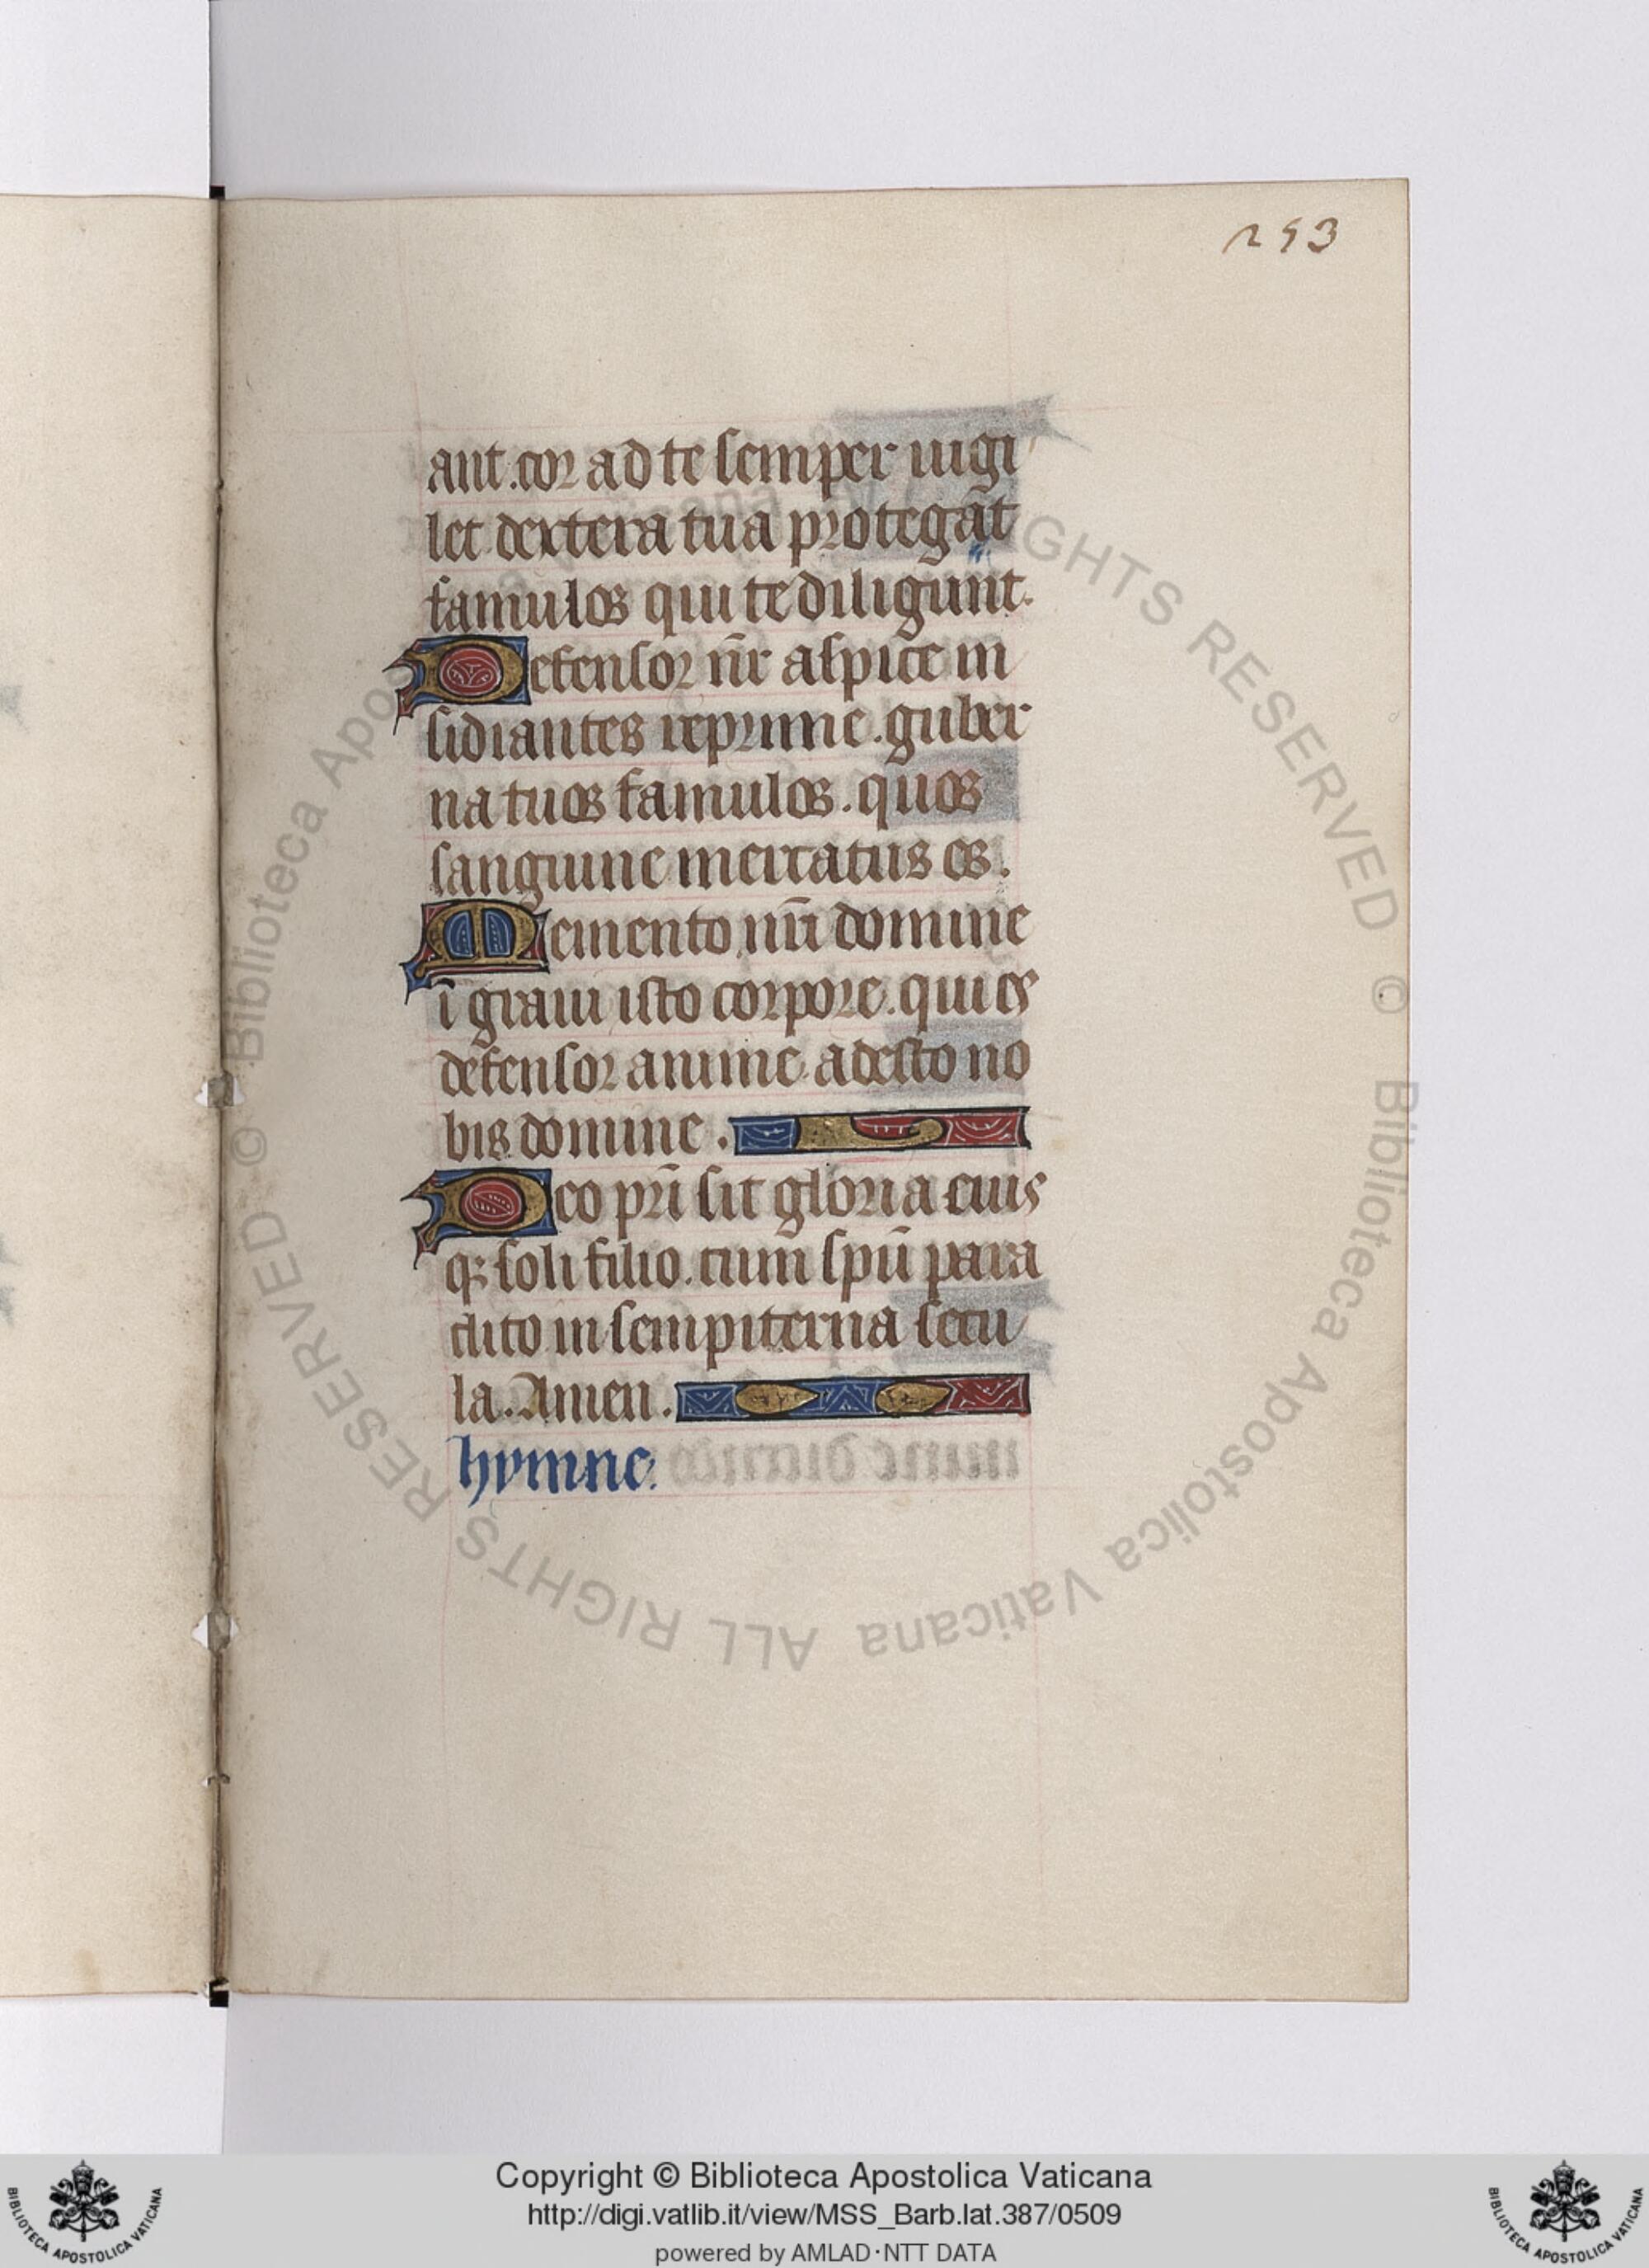 253
ant. cor ad te semper uigi
let dextera tua protegat
famulos qui te diligunt.
Defensor nr̄ aspice in
sidiantes reprime. guber
na tuos famulos. quos
sanguine mercatus es.
Memento nr̄i domine
ī graui isto corpore. qui es
defensor anime adesto no
bis domine.
Deo pr̄i sit gloria eius
q; soli filio. cum spū para
clito in sempiterna secu
la. Amen.
hymne.
Copyright © Biblioteca Apostolica Vaticana
http://digi.vatlib.it/view/MSS_Barb.lat.387/0509
powered by AMLAD·NTT DATA
BIBLIOTECA APOSTOLICA VATICANA
BIBLIOTECA APOSTOLICA VATICANA
© Biblioteca Apostolica Vaticana ALL RIGHTS RESERVED
© Biblioteca Apostolica Vaticana ALL RIGHTS RESERVED